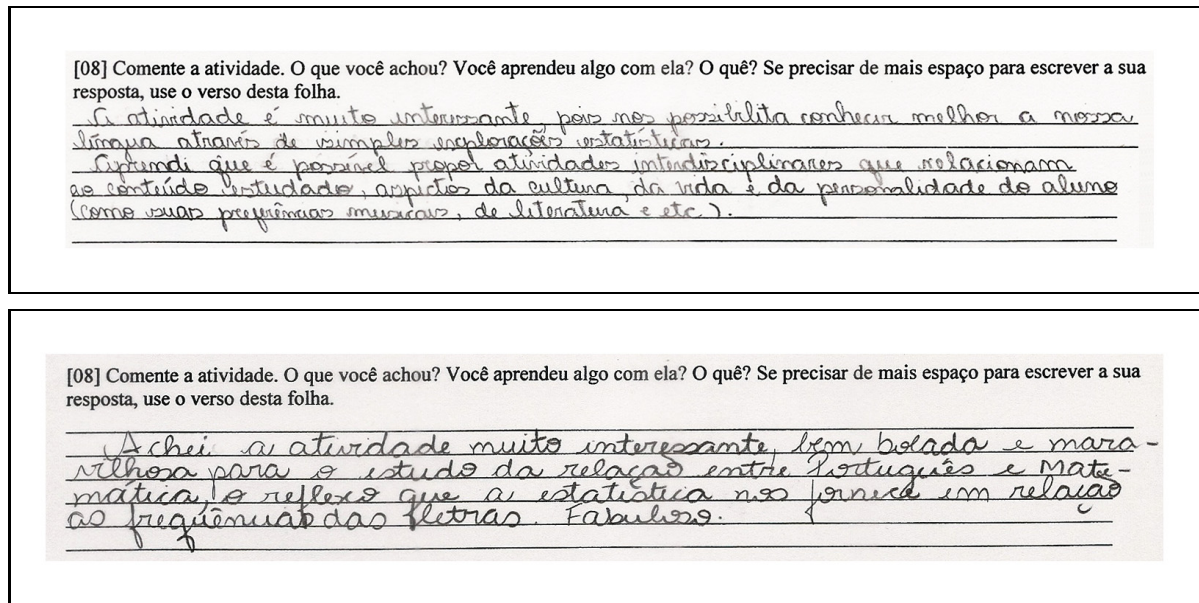 [08] Comente a atividade. O que você achou? Você aprendeu algo com ela? O quê? Se precisar de mais espaço para escrever a sua
resposta, use o verso desta folha.
A atividade é muito interessante, pois nos possibilita conhecer melhor a nossa
língua através de simples explorações estatísticas.
Aprendi que é possível propor atividades interdisciplinares que relacionam
ao conteúdo estudado, aspictos da cultura, da vida e da personalidade do aluno
(como suas preferências musicais, de literatura e etc.).
[08] Comente a atividade. O que você achou? Você aprendeu algo com ela? O quê? Se precisar de mais espaço para escrever a sua
resposta, use o verso desta folha.
Achei a atividade muito interessante, bem bolada e mara-
vilhosa para o estudo da relação entre Português e Mate-
mática, o reflexo que a estatística nos fornece em relação
as freqüências das letras. Fabuloso.